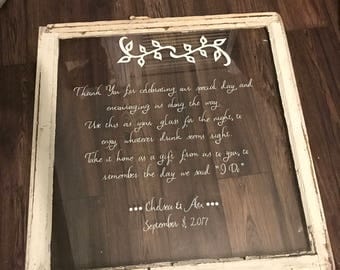 Thank You for celebrating our special day, and
encouraging us along the way.
Use this as your glass for the night, to
enjoy whatever drink seems right.
Take it home as a gift from us to you, to
remember the day we said "I Do"
Chelsea & Alex
September 8, 2017